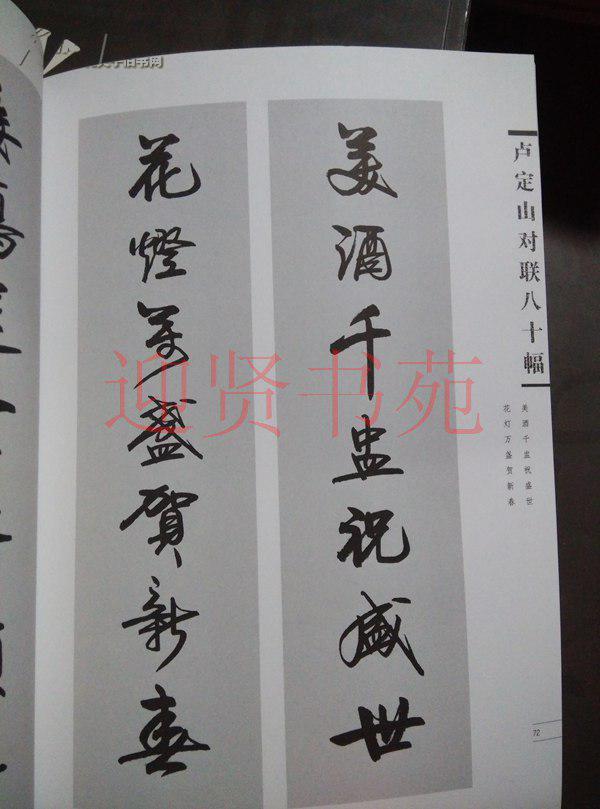 卢定山对联八十幅
美酒千盅祝盛世
花燈萬盞賀新春
美酒千盅祝盛世
花灯万盏贺新春
72
迎贤书苑